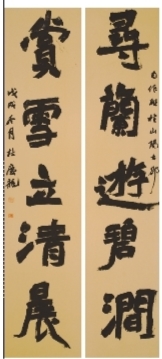 尋蘭遊碧澗
賞雪立清晨
戊戌冬月